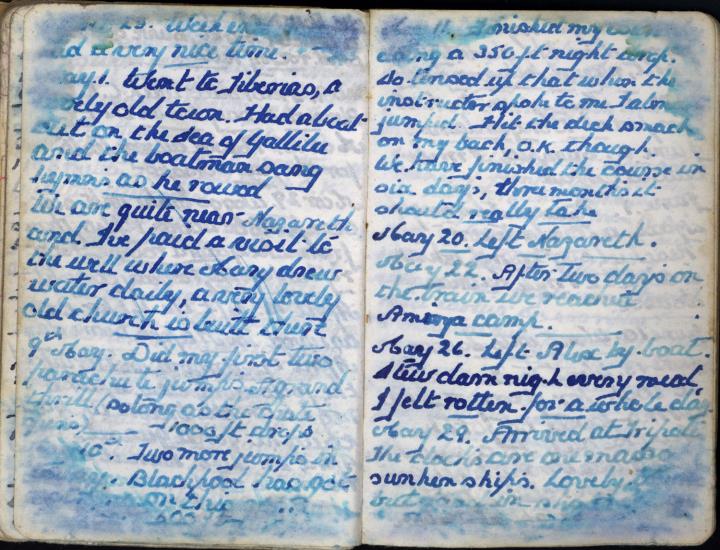 29. Week en
had a very nice time.
May 1. Went to Tiberias, a
lovely old town. Had a boat
out on the sea of Gallilee
and the boatman sang
hymns as he rowed
We are quite near Nazareth
and I've paid a visit to
the well where Mary drew
water daily, a very lovely
old church is built there
9th May. Did my first two
parachute jumps. A grand
thrill (so long as the chute
1000 ft drops
10th. Two more jumps in
Blackpool has got
on this
11. Finished my
doing a 350 ft night drop.
So tensed up that when the
instructor spoke to me I almost
jumped. Hit the deck smack
on my back, O.K. though.
We have finished the course in
six days, three months it
should really take
May 20. Left Nazareth.
May 22. After two days on
the train we reached
camp.
May 26. Left Alex by boat.
darn nigh every meal,
I felt rotten for a whole day
May 29. Arrived at Tripoli
The docks are one mass o
sunken ships. Lovely
in